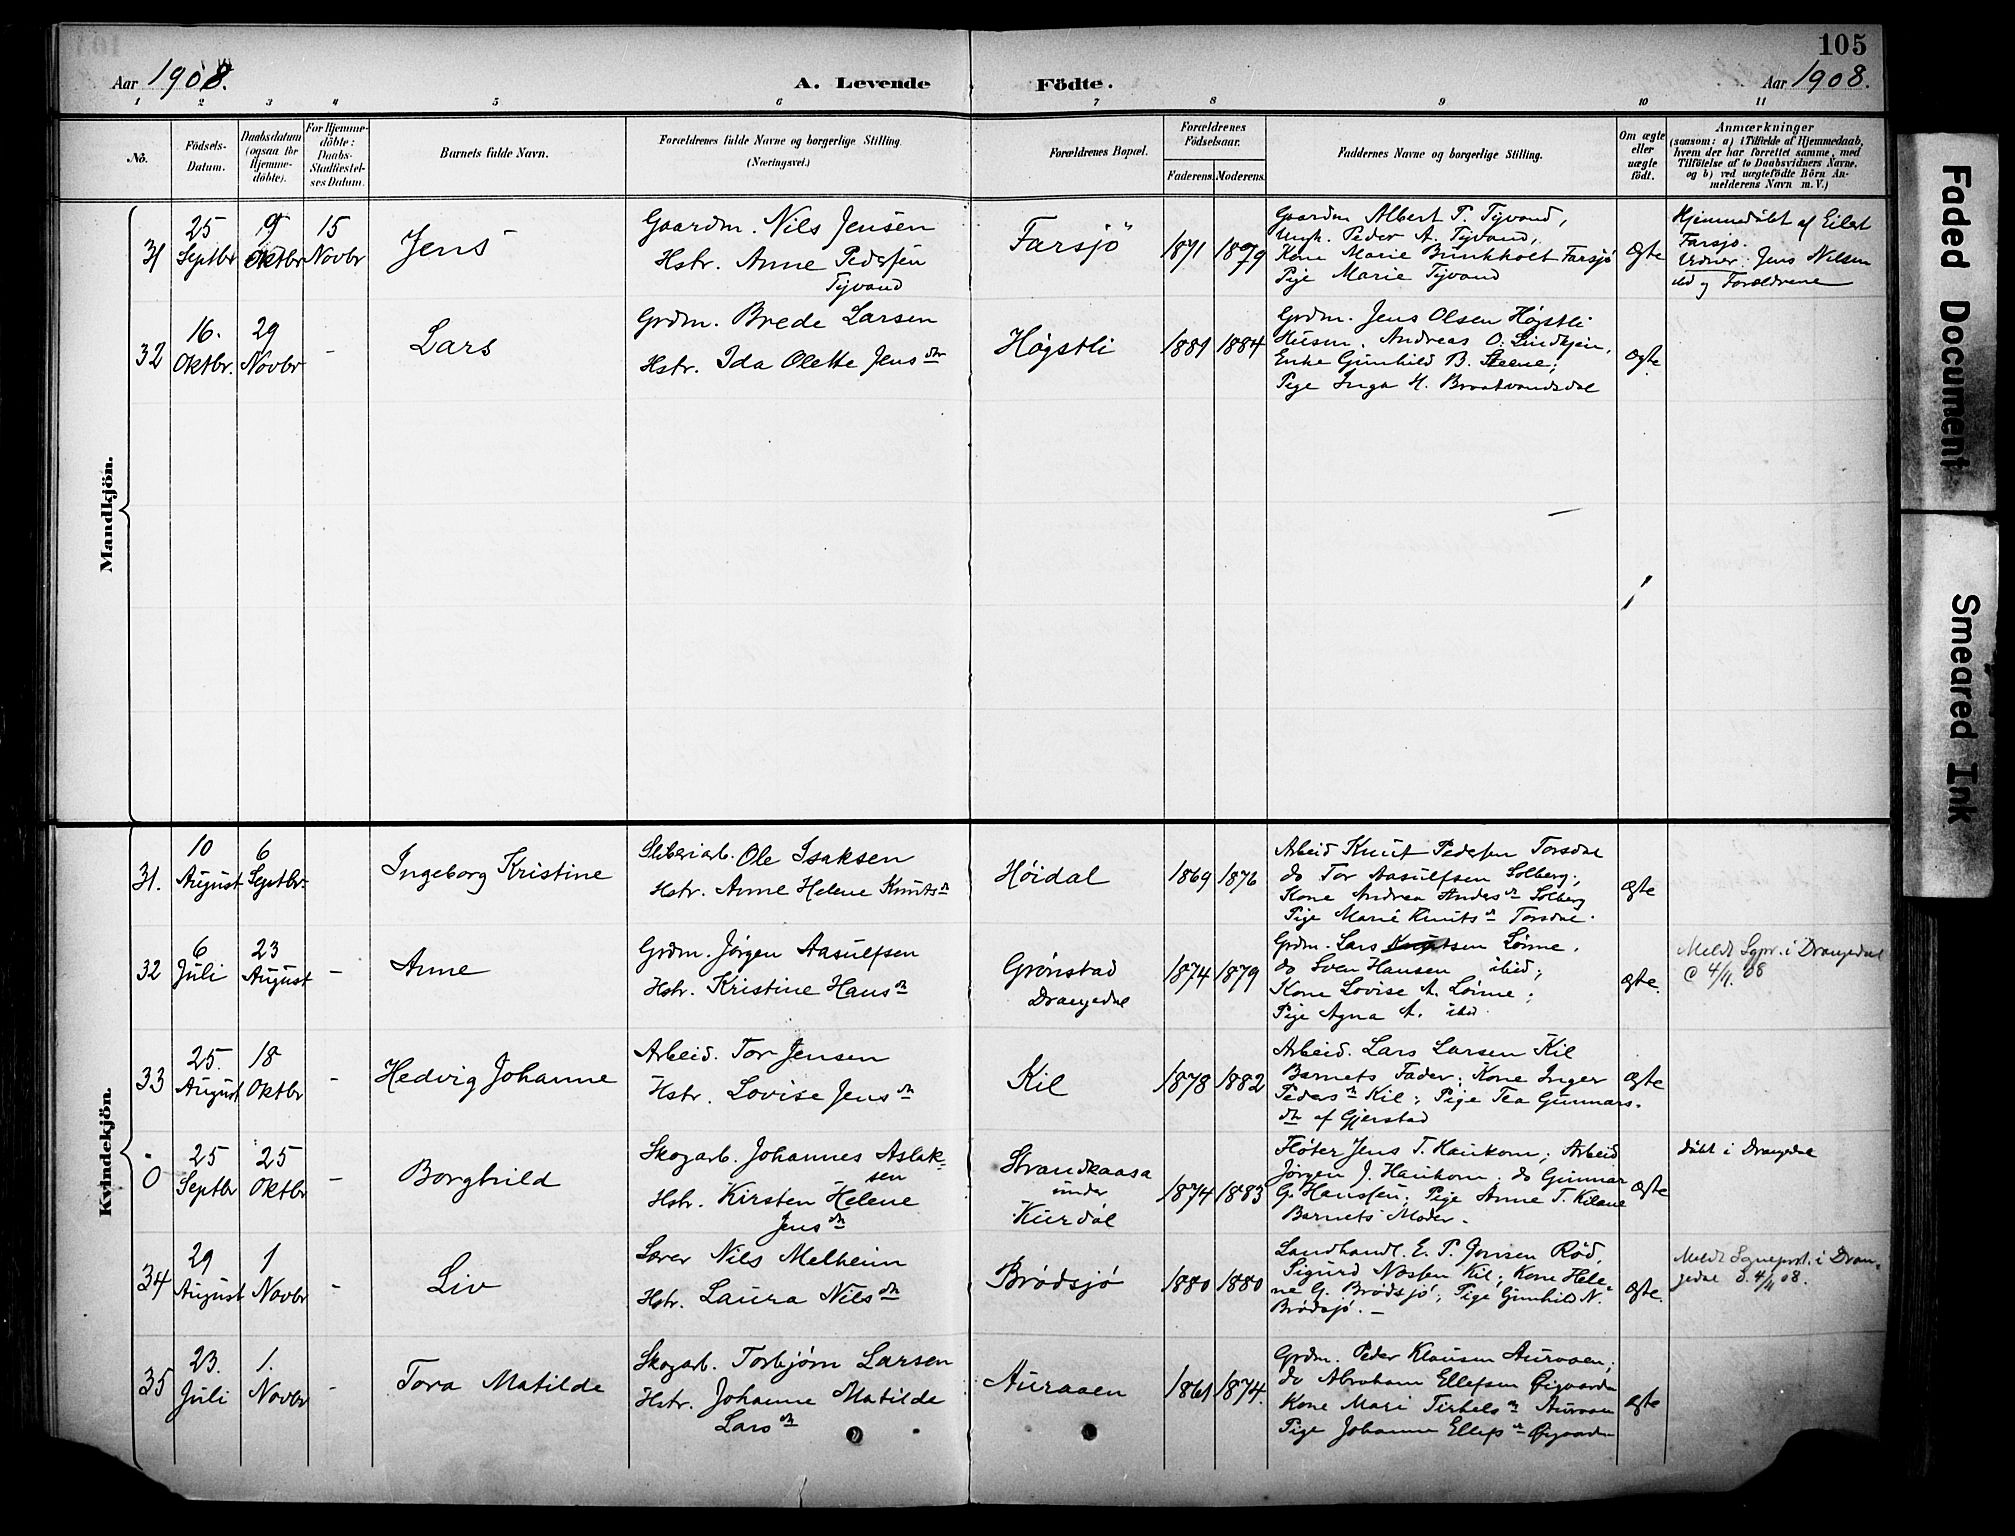 105
Aar 1908.
A. Levende Födte.
Aar 1908.
1 2 3 4 5 6 7 8 9 10 11
No.
Födsels-
Datum.
Daabsdatum
(ogsaa for
Hjemme-
döbte).
For Hjemme-
döbte:
Daabs-
Stadfæstel-
ses Datum.
Barnets fulde Navn.
Forældrenes fulde Navne og borgerlige Stilling.
(Næringsvei.)
Forældrenes Bopæl.
Forældrenes
Födselsaar.
Faderens. Moderens.
Faddernes Navne og borgerlige Stilling.
Om ægte
eller
uægte
födt.
Anmærkninger
(saasom: a) i Tilfælde af Hjemmedaab,
hvem der har forrettet samme, med
Tilföielse af to Daabsvidners Navne,
og b) ved uægtefödte Börn An-
melderens Navn m. V.)
Mandkjön.
31
25
Septbr
9
Oktbr
15
Novbr
Jens
Gaardm. Nils Jensen
Hstr. Anne Pedersen
Tyvand
Farsjö
1871
1879
Gaardm Albert P. Tyvand,
Ungk. Peder A. Tyvand,
Kone Marie Bunkholt Farsjö
Pige Marie Tyvand
Ægte
Hjemmedöbt af Eilert
Farsjø.
Vidner: Jens Nilsen
ibd og Forældrene
32
16.
Oktbr.
29
Novbr
-
Lars
Grdm. Brede Larsen
Hstr. Ida Olette Jensdtr
Høgstli
1881
1884
Grdm. Jens Olsen Høgstli
Husm. Andreas O. Lindheim,
Enke Gunhild B. Steene;
Pige Inga H. Braatvandsdal
Ægte
Kvindekjön.
31.
10
August
6
Septbr.
Ingeborg Kristine
Sliberiarb. Ole Isaksen
Hstr. Anne Helene Knutsdtr
Höidal
1869
1876
Arbeid Knut Pedersen Torsdal
do Tor Aasulfsen Solberg;
Kone Andrea Andersdtr Solberg
Pige Marie Knutsdtr Torsdal.
Ægte
32
6
Juli
23
August
-
Anne
Grdm. Jørgen Aasulfsen
Hstr. Kristine Hansdtr
Grønstad
Drangedal
1874
1879
Grdm. Lars Knutsen Lönne.
do Sven Hansen ibid;
Kone Lovise A. Lönne;
Pige Agna A. ibid.
Ægte.
Meldt Sgpr. i Drangedal
d 4/11. 08
33
25.
August
18
Oktbr
-
Hedvig Johanne
Arbeid. Tor Jensen
Hstr. Lovise Jensdtr
Kil
1878
1882
Arbeid. Lars Larsen Kil
Barnets Fader; Kone Inger
Pedersdtr Kil; Pige Tea Gunnars-
dtr af Gjerstad
Ægte
0
25
Septbr
25
Oktbr
-
Borghild
Skogarb. Johannes Aslak-
sen
Hstr. Kirsten Helene
Jensdtr
Strandkaasa
under
Kurdøl
1874
1883
Fløter Jens T. Haukom; Arbeid
Jørgen J. Haukom; do Gunnar
G. Hanssen; Pige Anne T. Kilane
Barnets Moder.
Ægte
döbt i Drangedal
34
29
August
1
Novbr
-
Liv
Lærer Nils Melheim
Hstr. Laura Nilsdtr
Brødsjø
1880
1880
Landhandl. E. P. Jonsen Rød,
Sigurd Næsten Kil; Kone Hele-
ne G. Brødsjø; Pige Gunhild N.
Brødsjø. -
Ægte.
Meldt Sogneprst. i Dran-
gedal d. 4/11 08.
35
23.
Juli
1.
Novbr
-
Tora Matilde
Skogarb. Torbjørn Larsen
Hstr. Johanne Matilde
Larsdtr
Auraaen
1861
1874.
Grdm. Peder Klausen Auraaen;
do Abraham Ellefsen Øigaarden
Kone Mari Terkelsdtr Auraaen
Pige Johanne Ellefsdtr Øigaarden
Ægte
Faded Document
Smeared Ink